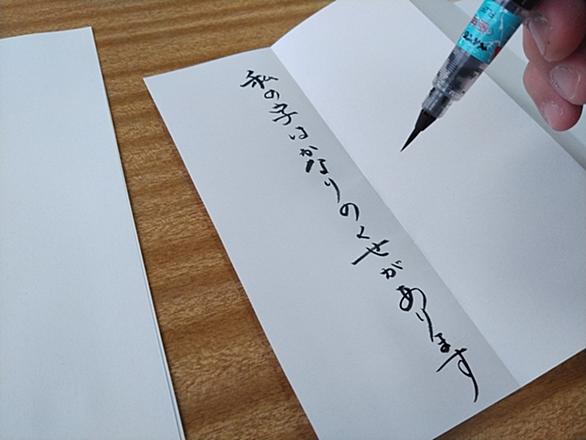 私の字はかなりのくせがあります